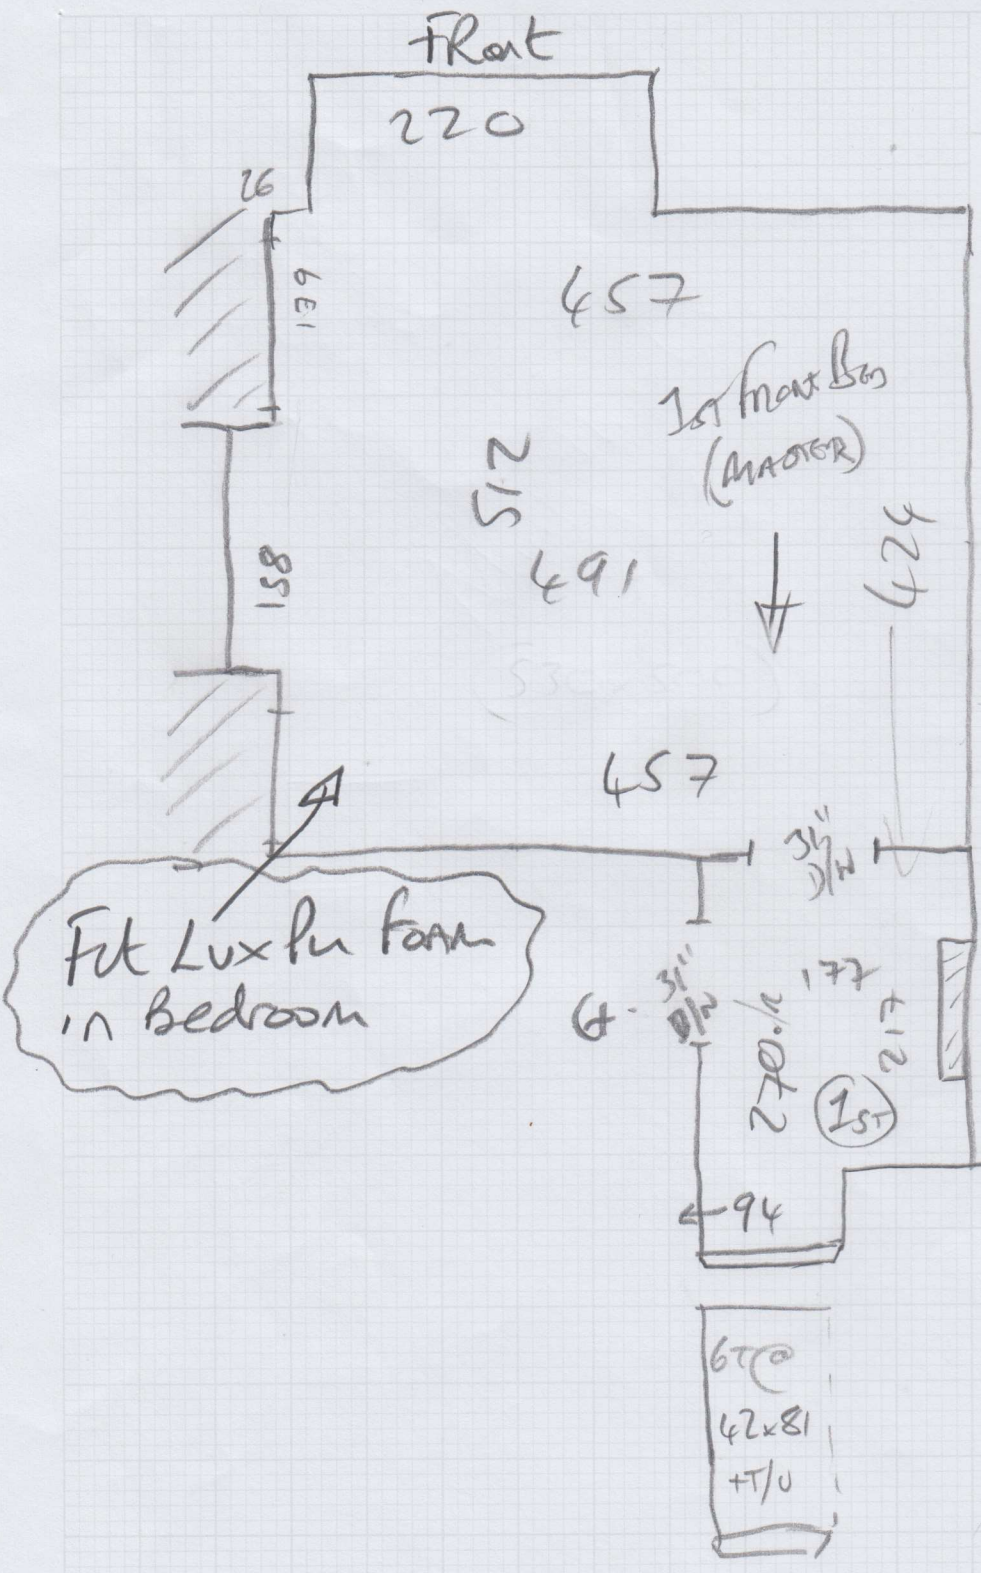 FRont
220
26
139
457
1st Front Bed
(MASTER)
512
424
158
491
457
31"
D/N
Fit Lux Pu Foam
in Bedroom
31"
D/N
177
217
270
1ST
94
6T@
42x81
+T/U